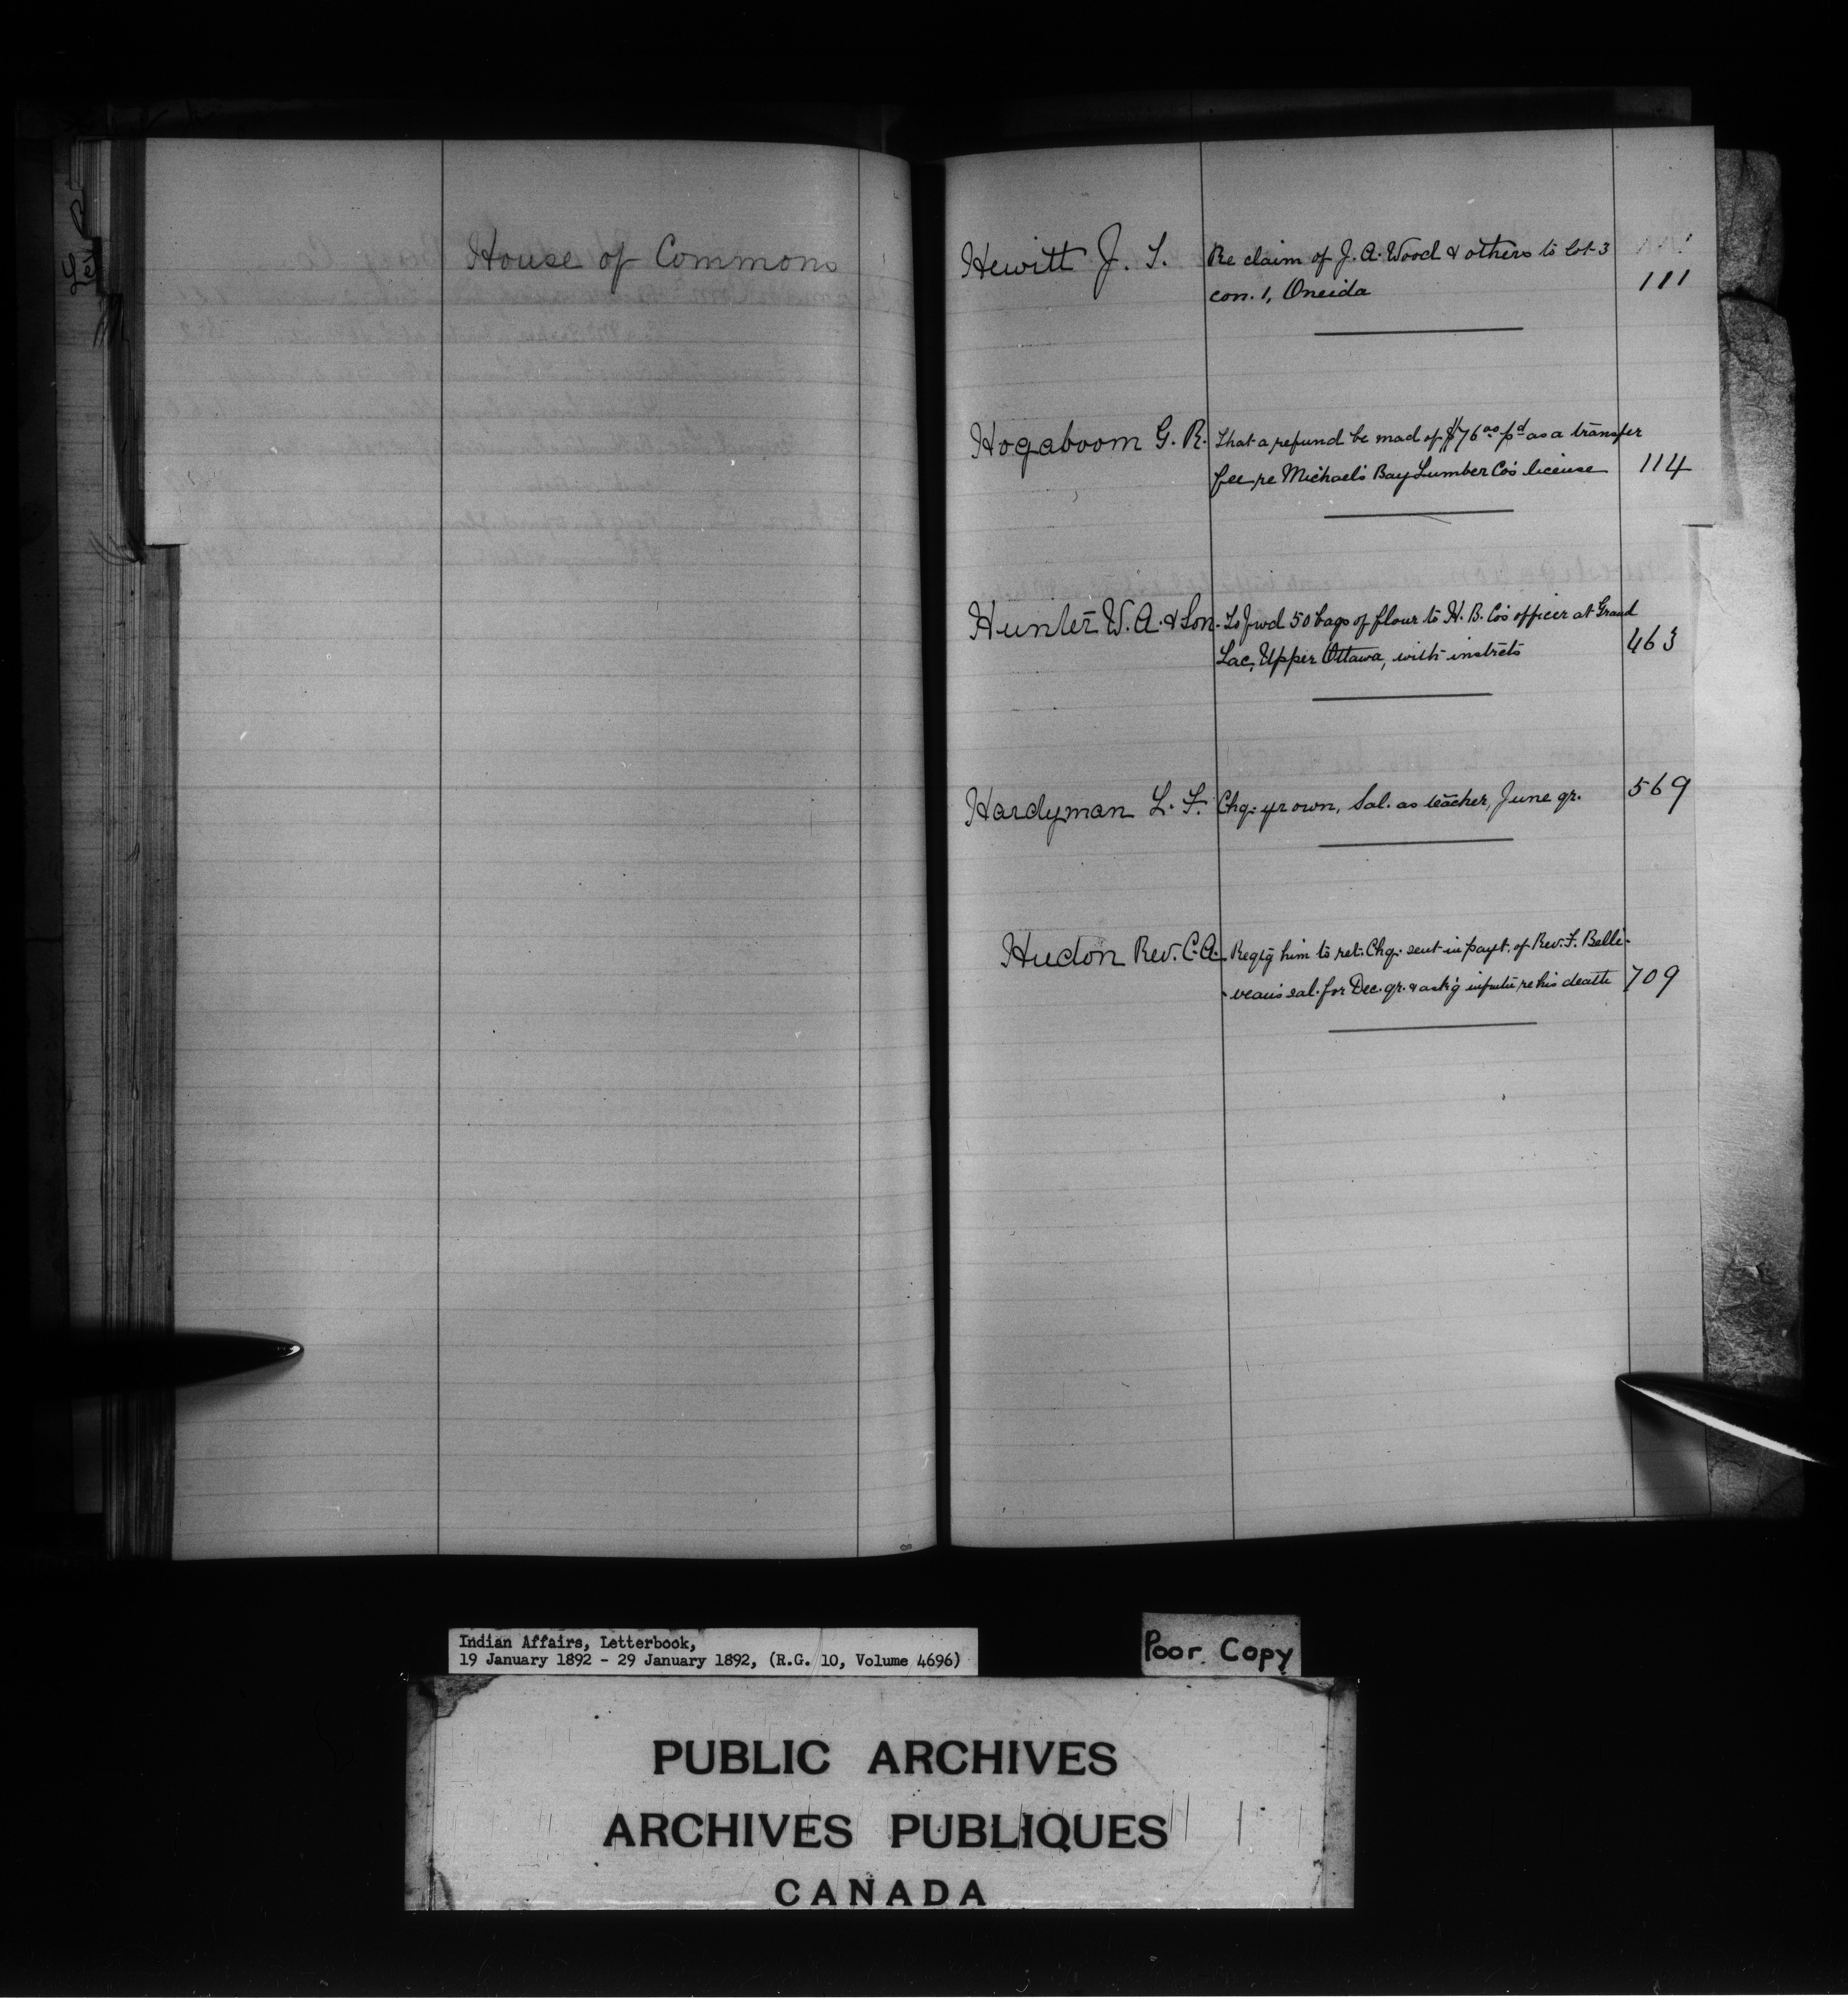 House of Commons
Hewitt J. T. Re claim of J. A. Wood & others to lot 3
con. 1, Oneida 111
Hogaboom G. R. That a refund be mad of $76 00 pd as a transfer
fee re Michael's Bay Lumber Co's license 114
Hunter W. A. & Son. To fwd 50 bags of flour to H. B. Co's officer at Grand
Lac, Upper Ottawa, with instrcts 463
Hardyman L. F. Chq. yr own, Sal. as teacher, June qr. 569
Hudon Rev. C. A. Reqtg him to ret. Chq. sent in payt. of Rev. F. Belli-
-veau's sal. for Dec. qr. & ask'g re his death 709
Indian Affairs, Letterbook,
19 January 1892 - 29 January 1892, (R.G. 10, Volume 4696)
Poor Copy
PUBLIC ARCHIVES
ARCHIVES PUBLIQUES
CANADA